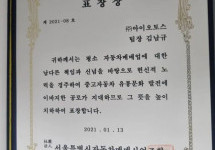 표 창 장
제 2021-08 호
㈜아이오토스
팀장 김남규
귀하께서는 평소 자동차매매업에 대한
남다른 책임과 신념을 바탕으로 헌신적 노
력을 경주하여 중고자동차 유통문화 발전에
이바지한 공로가 지대하므로 그 뜻을 높이
치하하여 표창합니다.
2021 . 01 . 13